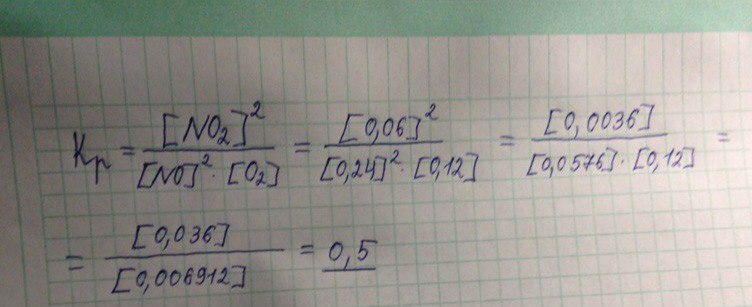 Kp = [NO2]^2 / [NO]^2 · [O2] = [0,06]^2 / [0,24]^2 · [0,12] = [0,0036] / [0,0576] · [0,12] =
= [0,036] / [0,006912] = 0,5